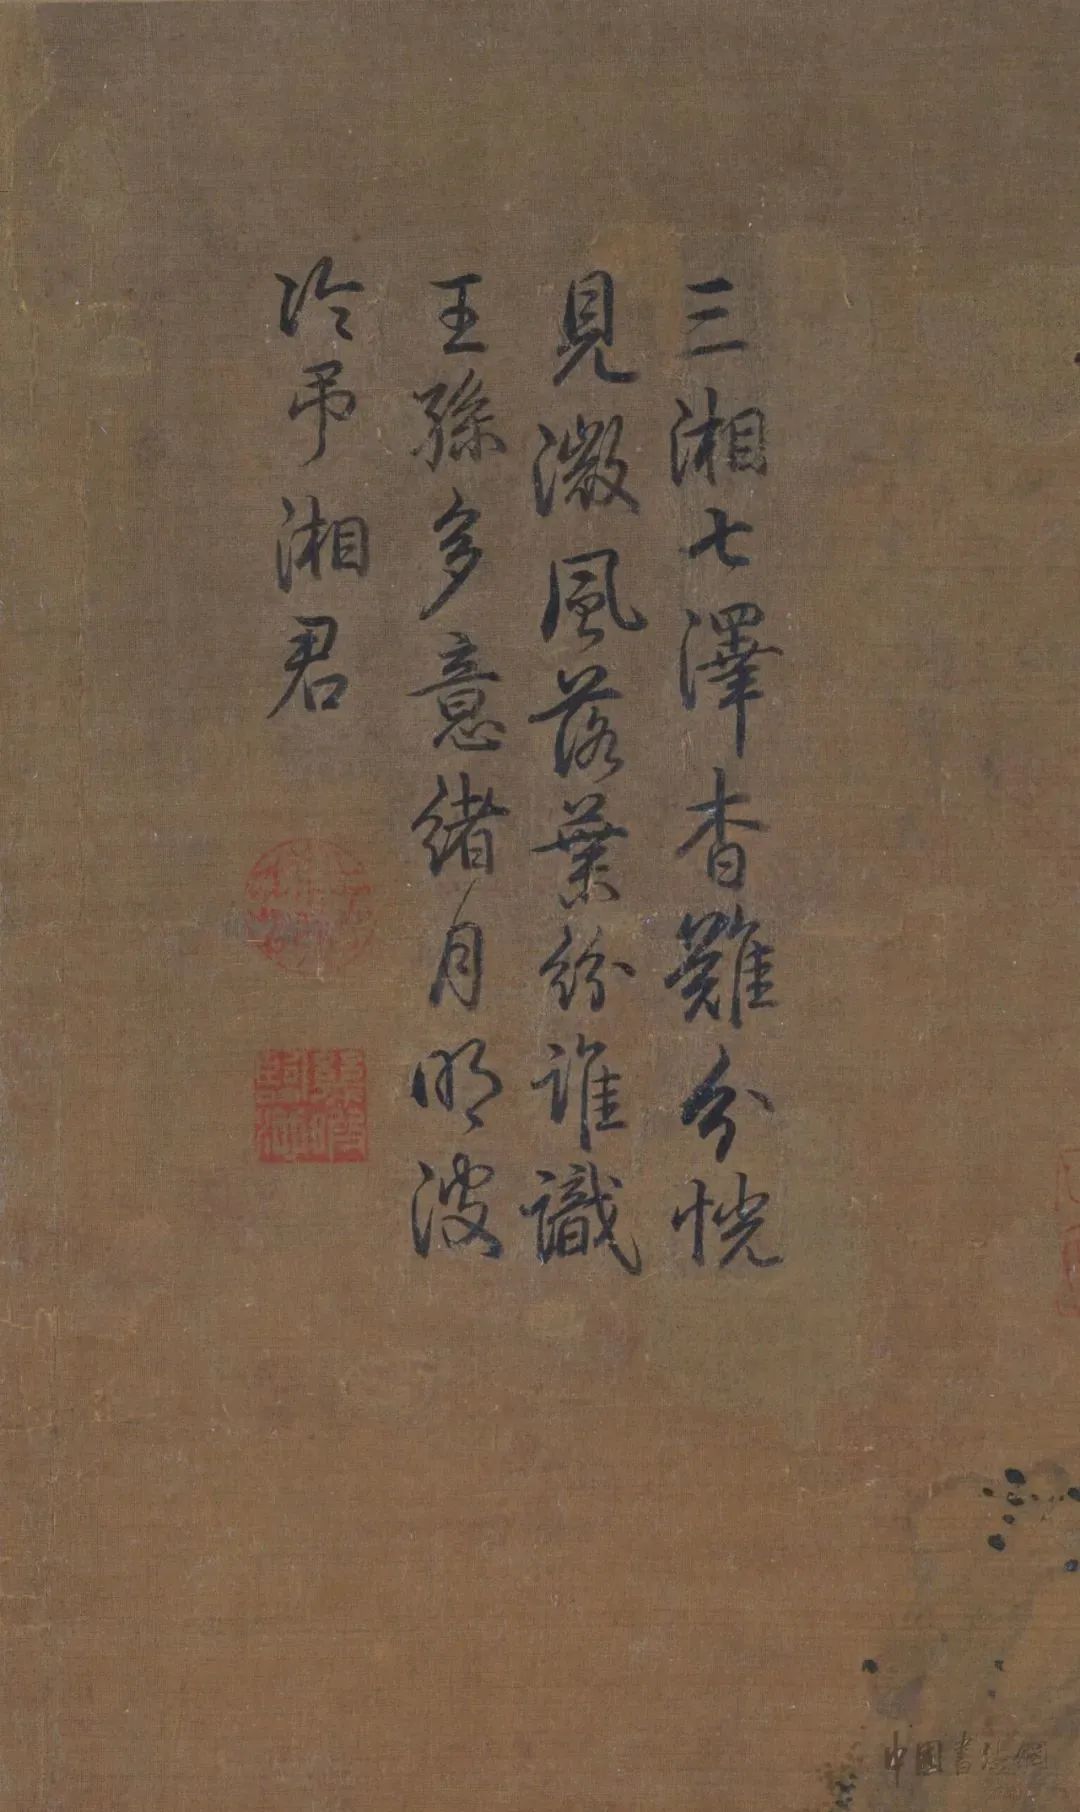 三湘七澤杳難分恍
見激風落葉紛誰識
王孫多意緒月明波
冷弔湘君
中国书法网